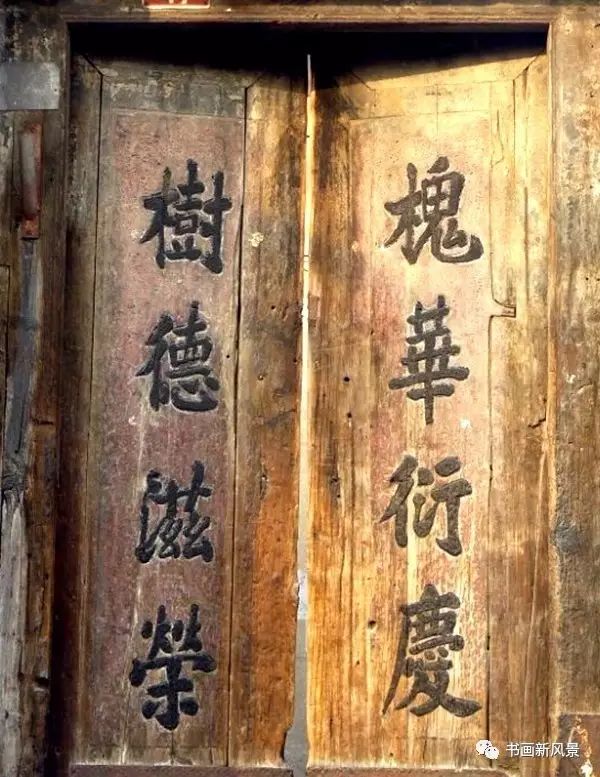 槐華衍慶
樹德滋榮
书画新风景